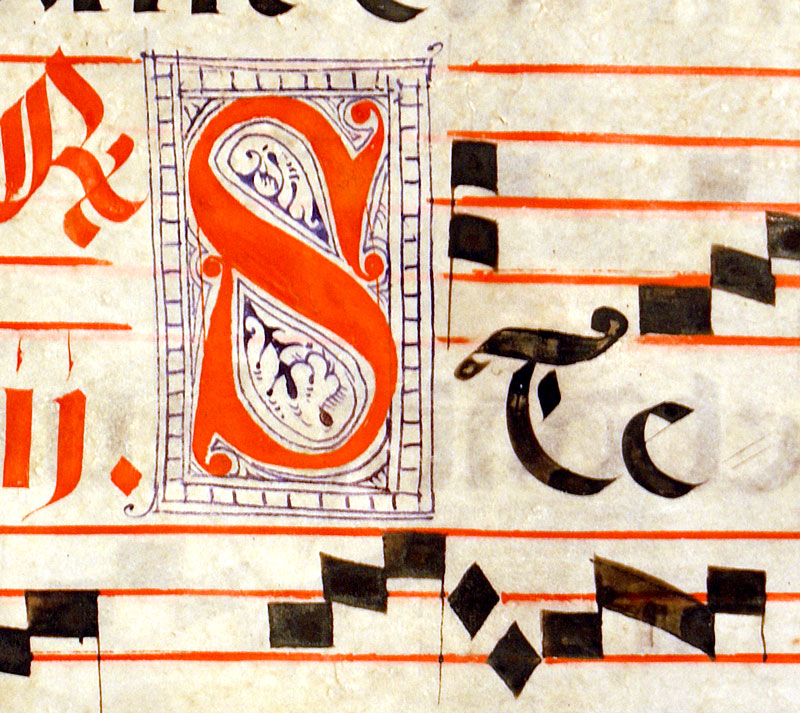 ℟
ij. STe